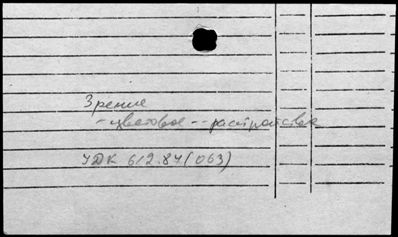 Зрение
- цветовое -- расстройства
УДК 612.84(063)